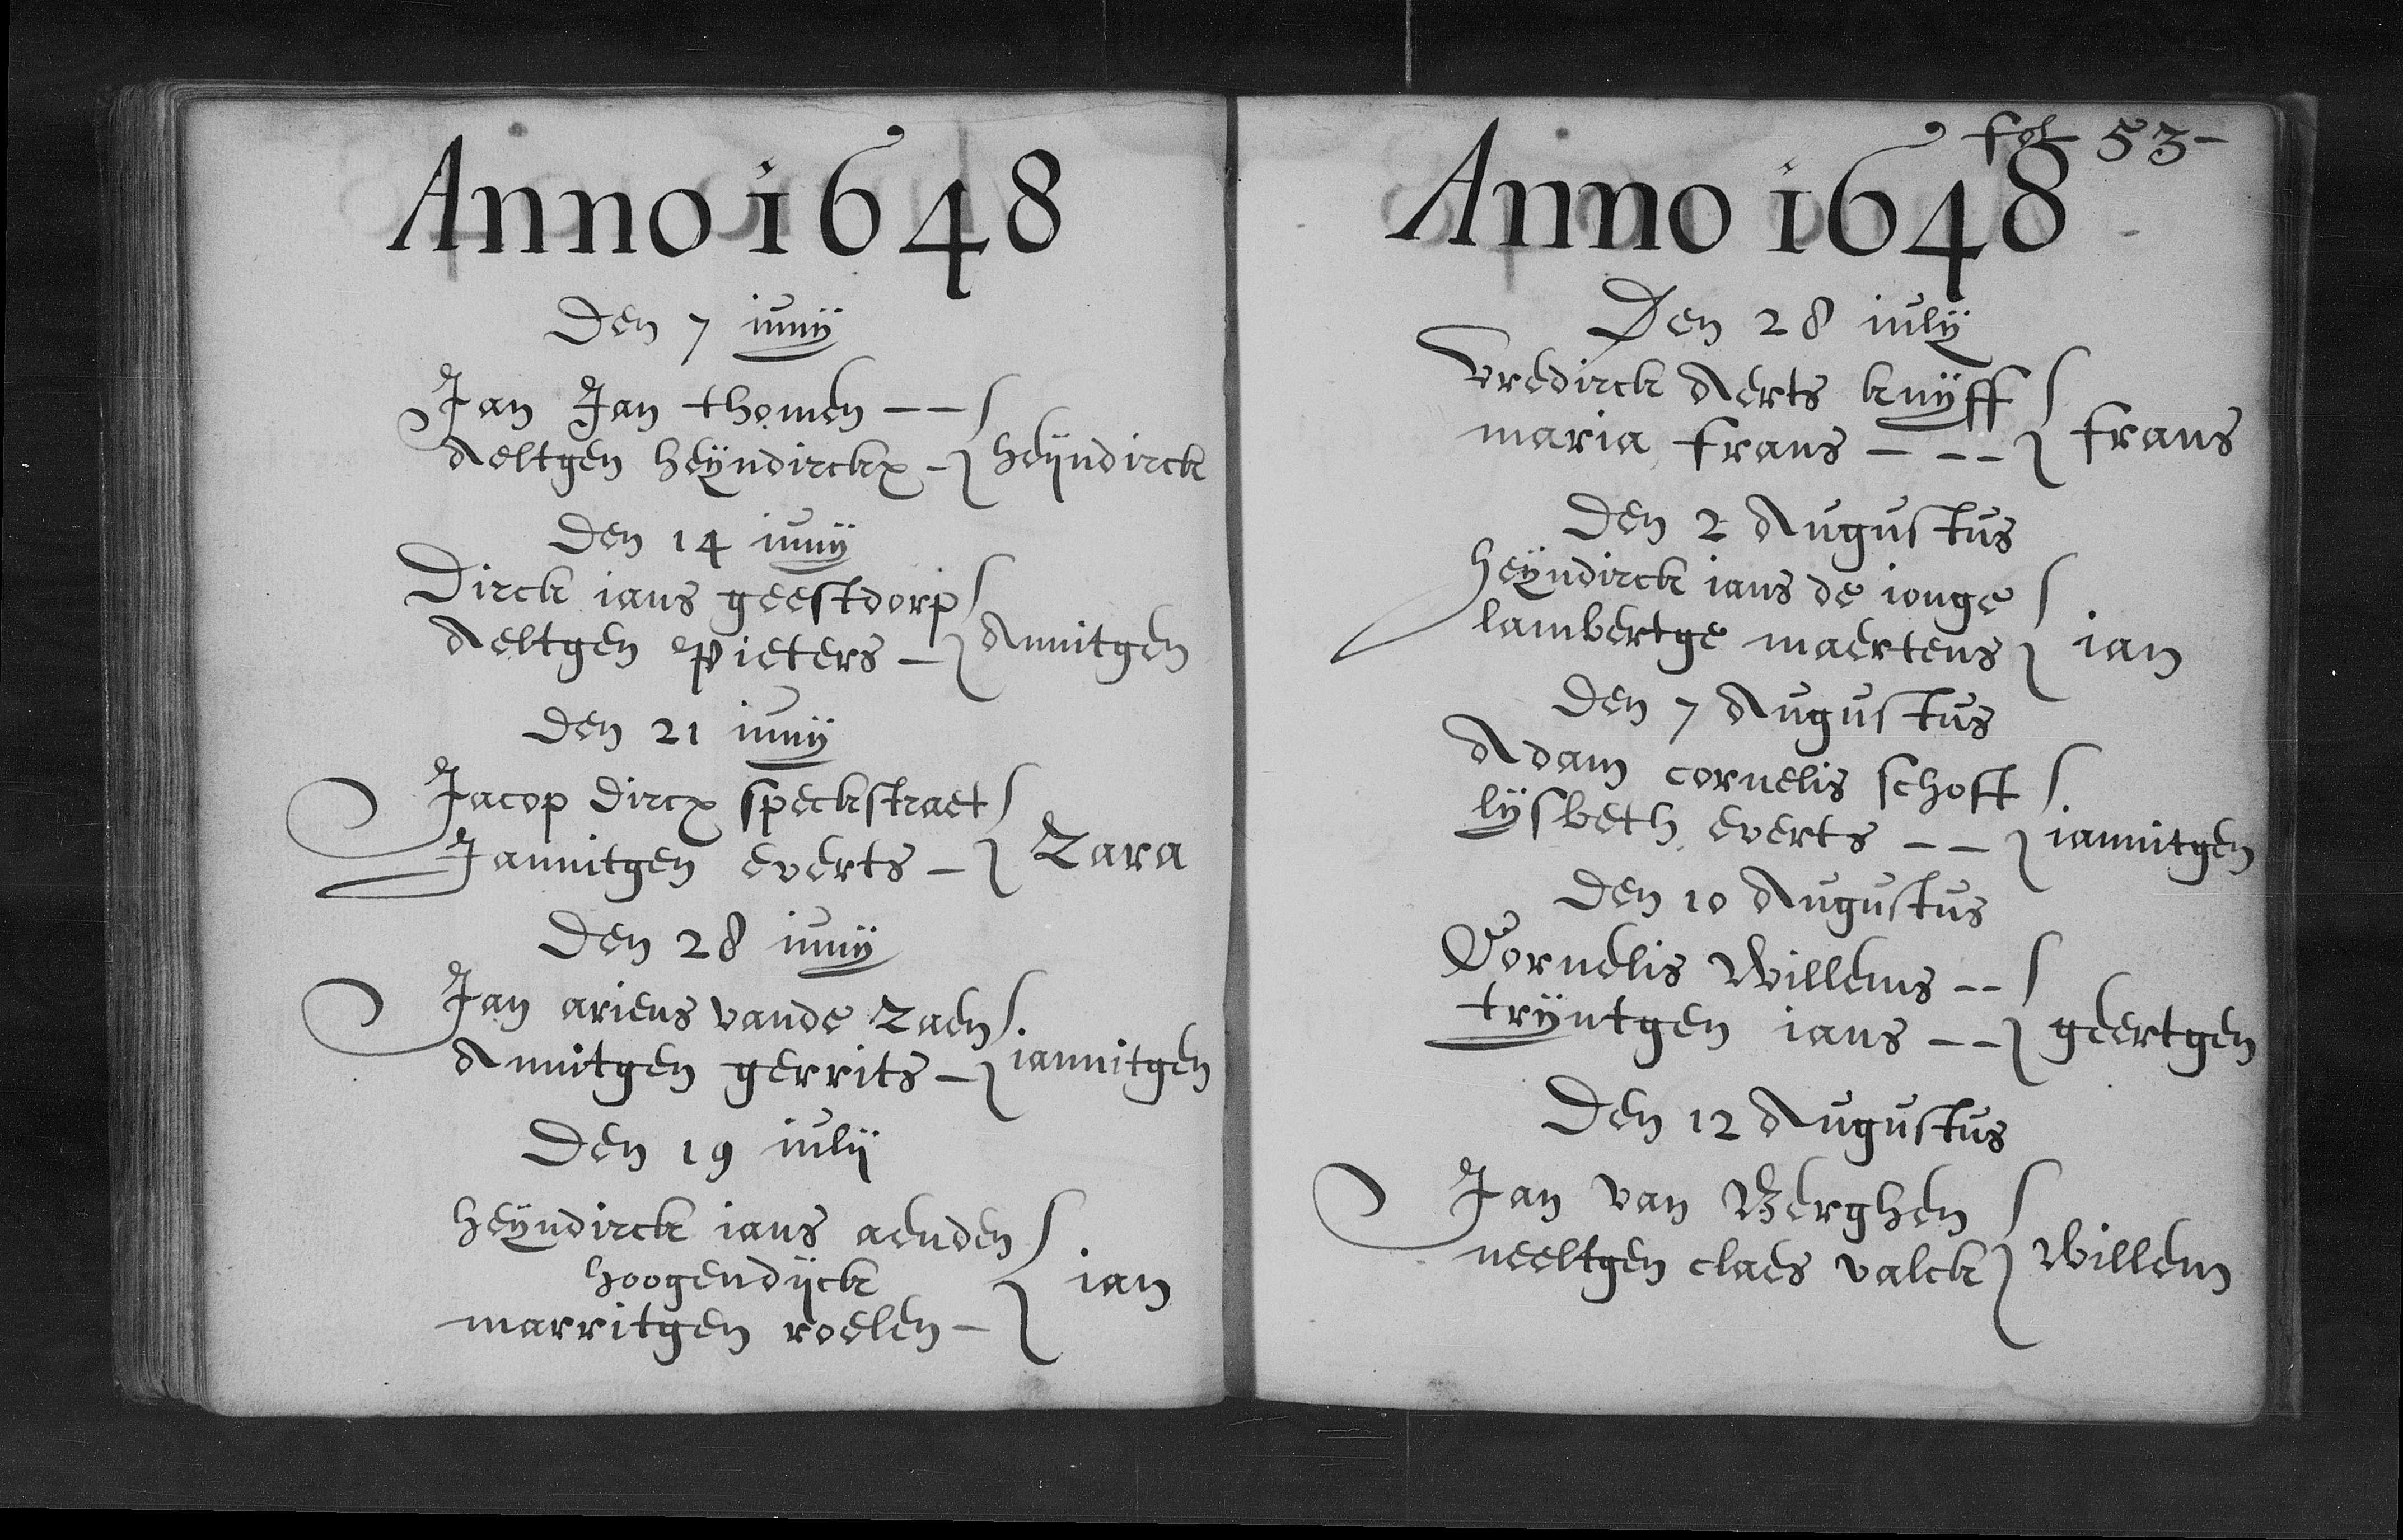 Anno 1648
Den 7 iunij
Jan Jan thomen --
Aeltgen heyndirckx - heyndirck
Den 14 iunij
Dirck ians geestdorp
Aeltgen Pieters - Annitgen
Den 21 iunij
Jacop dircx speckstraet
Jannitgen everts - Zara
Den 28 iunij
Jan ariens vande Zaen
Annitgen gerrits - iannitgen
Den 19 iulij
heyndirck ians aenden
hoogendijck
ian
marritgen roelen -
fol 53-
Anno 1648
Den 28 iulij
Vredirck Aerts knijff
maria frans --- frans
Den 2 Augustus
heyndirck ians de ionge
lambertge maertens ian
Den 7 Augustus
Adam cornelis schoft
lijsbeth everts -- iannitgen
Den 10 Augustus
Cornelis Willems --
trijntgen ians -- geertgen
Den 12 Augustus
Jan van Berghen
neeltgen claes valck Willem